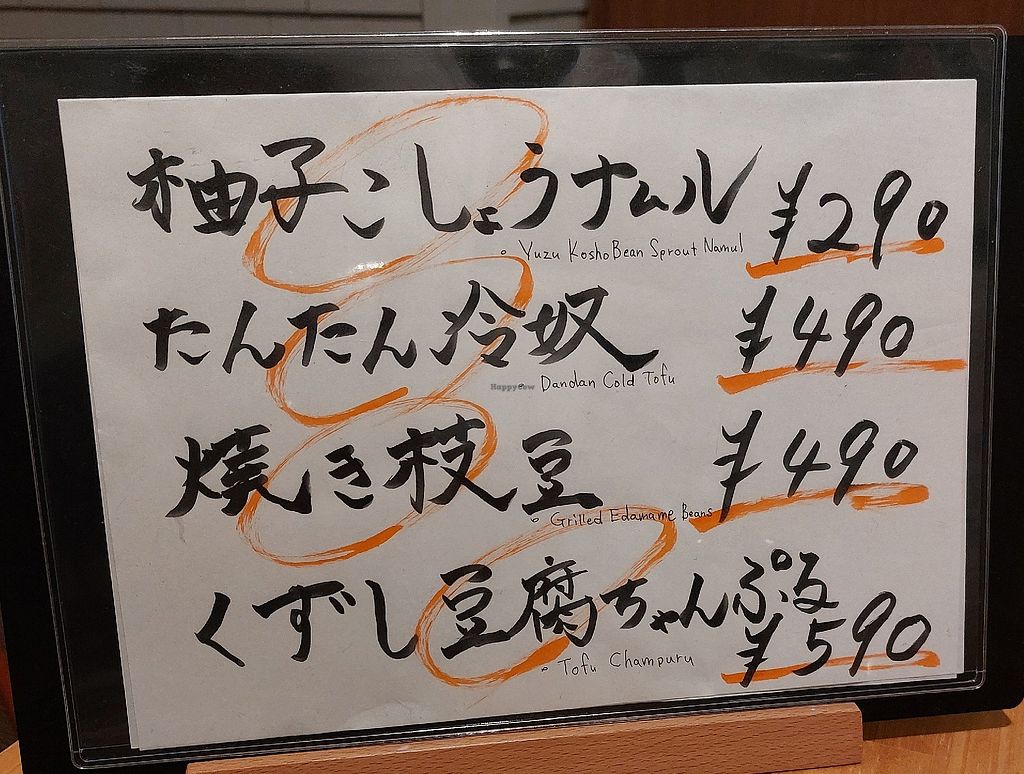 柚子こしょうナムル ¥290
Yuzu Kosho Bean Sprout Namul
たんたん冷奴 ¥490
HappyCow
Dandan Cold Tofu
焼き枝豆 ¥490
Grilled Edamame Beans
くずし豆腐ちゃんぷる ¥590
Tofu Champuru